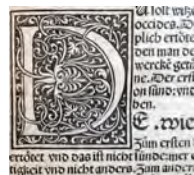 D
occides. D
plich ertöte
den man de
wercke genü
ne. Der ertö
on sünd: vnd
ben.
C .wie
Zům ersten
ertöret vnd das ist nicht sünde: mer
tigkeit vnd nicht anders. Zum ander